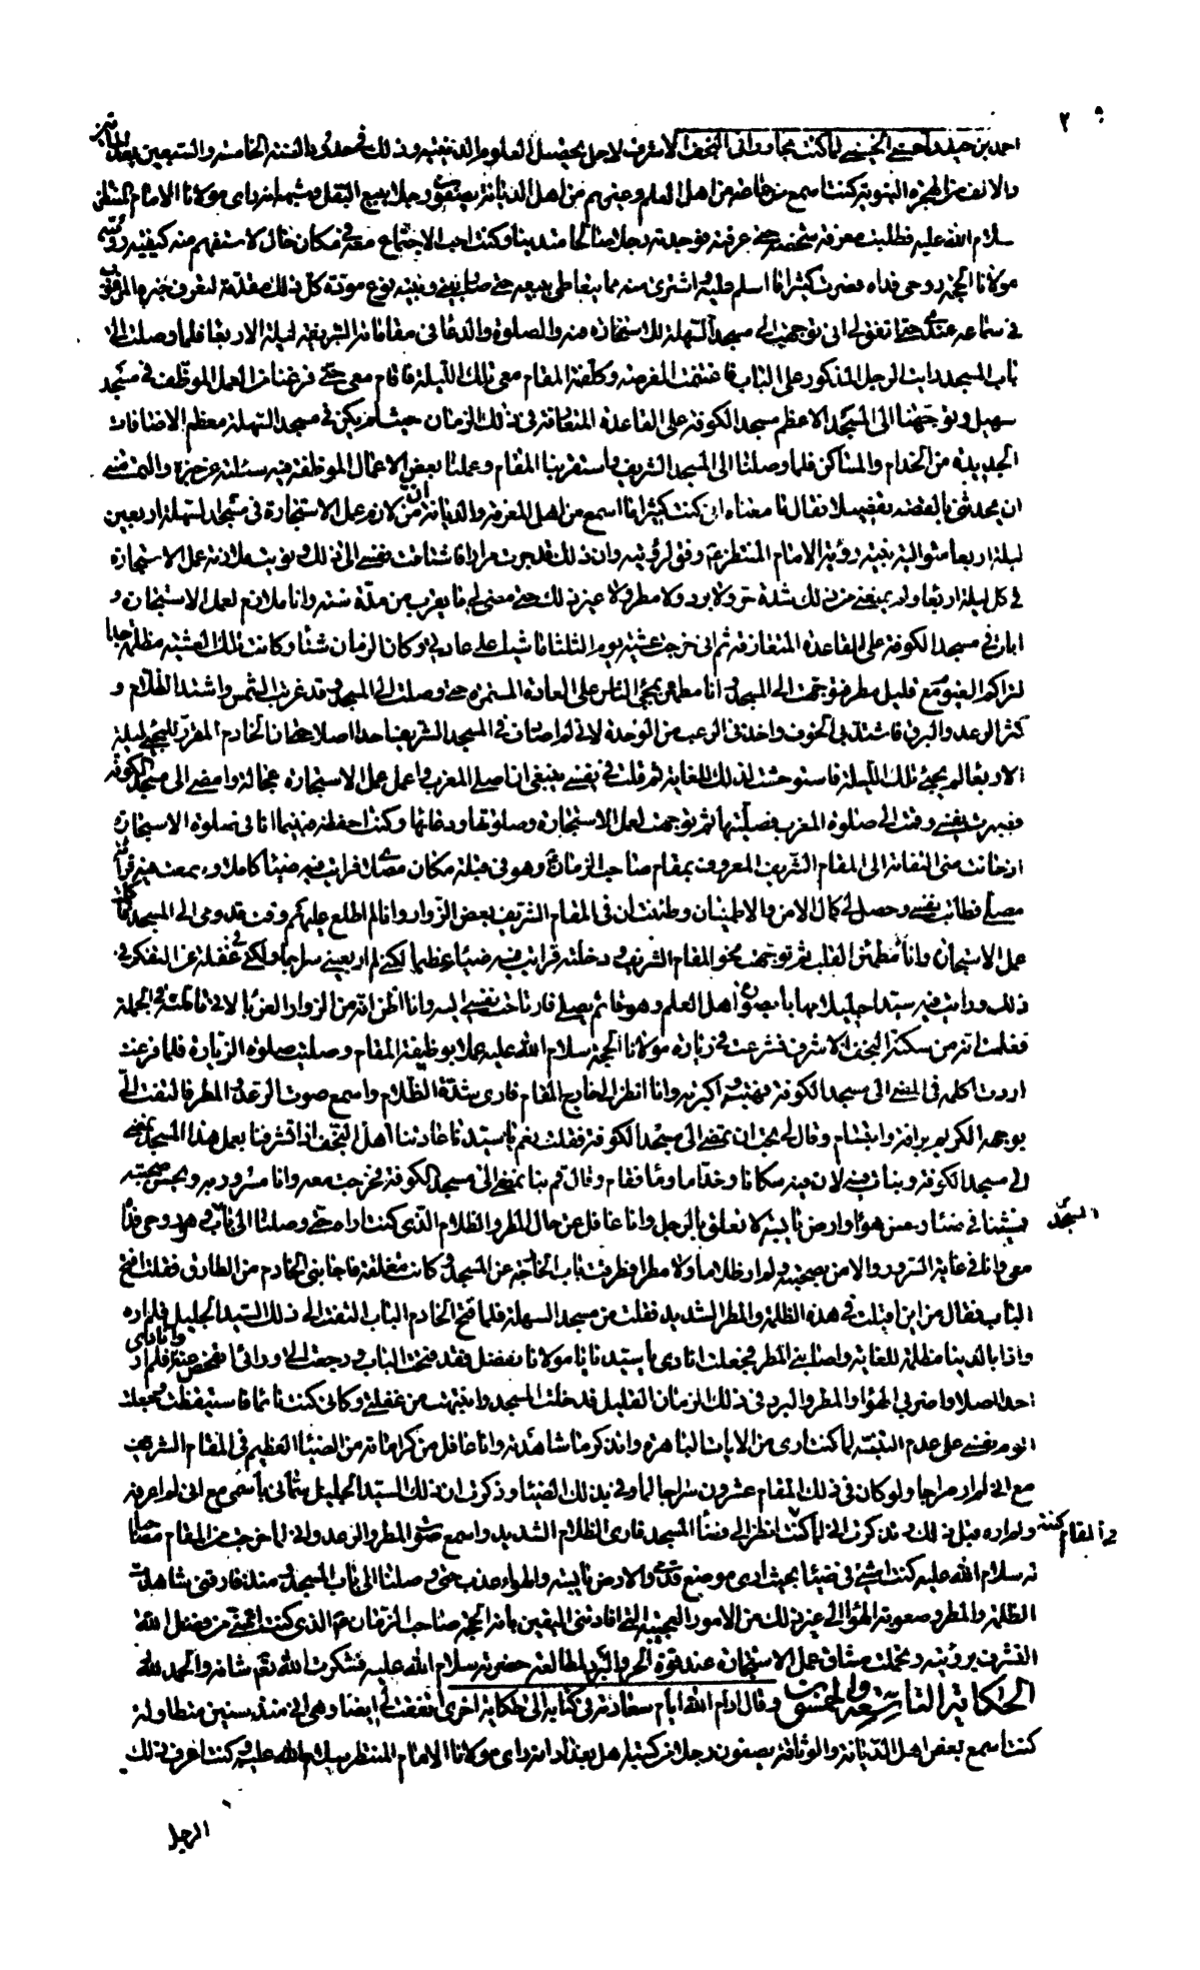 احمد بن حيدر الحسني الحسيني لما كنت مجاورا في النجف الاشرف لاجل تحصيل العلوم الدينية وذلك في حدود السنة الخامسة والسبعين بعد المائتين
والالف من الهجرة النبوية كنت اسمع من جماعة من اهل العلم وغيرهم من اهل الديانة يصفون رجلا يبيع البقل وشبهه انه راى مولانا الامام المنتظر
سلام الله عليه فطلبت معرفة شخصه حتى عرفته فوجدته رجلا صالحا متدينا وكنت احب الاجتماع معه في مكان خال لاستفهم منه كيفية رؤيته
مولانا الحجة روحي فداه فصرت كثيرا ما اسلم عليه واشتري منه مما يتعاطى ببيعه حتى صار بيني وبينه نوع مودة كل ذلك مقدمة لتعرف خبره المرغوب
في سماعه عندي حتى اتفق لي اني توجهت الى مسجد السهلة للاستجارة فيه والصلوة والدعاء في مقاماته الشريفة ليلة الاربعا فلما وصلت الى
باب المسجد رايت الرجل المذكور على الباب فاغتنمت الفرصة وكلفته المقام معي تلك الليلة فاقام معي حتى فرغنا من العمل الموظف في مسجد
سهيل وتوجهنا الى المسجد الاعظم مسجد الكوفة على القاعدة المتعارفة في ذلك الزمان حيث لم يكن في مسجد السهلة معظم الاضافات
الجديدة من الخدام والمساكن فلما وصلنا الى المسجد الشريف واستقر بنا المقام وعملنا بعض الاعمال الموظفة فيه سئلته عن خبره والتمست منه
ان يحدثني بالقصة تفصيلا فقال ما معناه اني كنت كثيرا ما اسمع من اهل المعرفة والديانة ان من لازم عمل الاستجارة في مسجد السهلة اربعين
ليلة اربعا متوالية بنية رؤية الامام المنتظر ع وفق لرؤيته وان ذلك قد جربت مرارا فاشتاقت نفسي الى ذلك ونويت ملازمة عمل الاستجارة
في كل ليلة اربعا ولم يمنعني من ذلك شدة حر ولا برد ولا مطر ولا غير ذلك حتى مضى لي ما يقرب من مدة سنة وانا ملازم لعمل الاستجارة و
ابات في مسجد الكوفة على القاعدة المتعارفة ثم اني خرجت عشية يوم الثلثا ماشيا على عادتي وكان الزمان شتاء وكانت تلك العشية مظلمة جدا
لتراكم الغيوم مع قليل مطر فتوجهت الى المسجد وانا مطمئن بمجئ الناس على العادة المستمرة حتى وصلت الى المسجد وقد غربت الشمس واشتد الظلام و
كثر الرعد والبرق فاشتد بي الخوف واخذني الرعب من الوحدة لاني لم اصادف في المسجد الشريف احدا اصلا حتى ان الخادم المقرر للمجئ ليلة
الاربعا لم يجئ تلك الليلة فاستوحشت لذلك للغاية ثم قلت في نفسي ينبغي ان اصلي المغرب واعمل عمل الاستجارة عجالة وامضي الى مسجد الكوفة
فصبرت نفسي وقمت الى صلوة المغرب فصليتها ثم توجهت لعمل الاستجارة وصلوتها ودعائها وكنت احفظه فبينما انا في صلوة الاستجارة
اذ حانت مني التفاتة الى المقام الشريف المعروف بمقام صاحب الزمان ع وهو في قبلة مكان مصلاي فرايت فيه ضياء كاملا وسمعت فيه قرائة
مصلي فطابت نفسي وحصل لي كمال الامن والاطمينان وظننت ان في المقام الشريف بعض الزوار وانا لم اطلع عليهم وقت قدومي الى المسجد فاكملت
عمل الاستجارة وانا مطمئن القلب ثم توجهت نحو المقام الشريف ودخلته فرايت فيه ضياء عظيما لكني لم ار بعيني سراجا ولكني في غفلة عن التفكر في
ذلك ورايت فيه سيدا جليلا مهابا بصورة اهل العلم وهو قائم يصلي فارتاحت نفسي اليه وانا اظن انه من الزوار الغرباء لاني تاملته في الجملة
فعلمت انه من سكنة النجف الاشرف فشرعت في زيارة مولانا الحجة سلام الله عليه عملا بوظيفة المقام وصليت صلوة الزيارة فلما فرغت
اردت اكلمه في المضي الى مسجد الكوفة فهبته واكبرته وانا انظر الى خارج المقام فارى شدة الظلام واسمع صوت الرعد والمطر فالتفت الي
بوجهه الكريم برافة وابتسام وقال لي تحب ان تمضي الى مسجد الكوفة فقلت نعم يا سيدنا عادتنا اهل النجف اذا تشرفنا بعمل هذا المسجد نمضي
الى مسجد الكوفة ونبات فيه لان فيه سكانا وخداما وماء فقام وقال قم بنا نمضي الى مسجد الكوفة فخرجت معه وانا مسرور به وبحسن صحبته
فمشينا في ضياء وحسن هواء وارض يابسة لا تعلق بالرجل وانا غافل عن حال المطر والظلام الذي كنت اراه حتى وصلنا الى باب المسجد وهو روحي فداه
معي وانا في غاية السرور والامن بصحبته ولم ار ظلاما ولا مطرا فطرقت باب الخارجة عن المسجد وكانت مغلقة فاجابني الخادم من الطارق فقلت افتح
الباب فقال من اين اقبلت في هذه الظلمة والمطر الشديد فقلت من مسجد السهلة فلما فتح الخادم الباب التفت الى ذلك السيد الجليل فلم اره
واذا بالدنيا مظلمة للغاية واصابني المطر فجعلت انادي يا سيدنا يا مولانا تفضل فقد فتحت الباب ورجعت الى ورائي اتفحص عنه وانادي فلم ار
احدا اصلا واضر بي الهواء والمطر والبرد في ذلك الزمان القليل فدخلت المسجد وانتبهت من غفلتي وكاني كنت نائما فاستيقظت وجعلت
الوم نفسي على عدم التنبه لما كنت ارى من الايات الباهرة واتذكر ما شاهدته وانا غافل من كراماته من الضياء العظيم في المقام الشريف
مع اني لم ار سراجا ولو كان في ذلك المقام عشرون سراجا لما وفى بذلك الضياء وذكرت ان ذلك السيد الجليل سماني باسمي مع اني لم اعرفه
ولم اره قبل ذلك وتذكرت اني لما كنت في المقام كنت انظر الى فضاء المسجد فارى الظلام الشديد واسمع صوت المطر والرعد واني لما خرجت من المقام مصاحبا
له سلام الله عليه كنت امشي في ضياء بحيث ارى موضع قدمي والارض يابسة والهواء عذب حتى وصلنا الى باب المسجد ومنذ فارقني شاهدت
الظلمة والمطر وصعوبة الهواء الى غير ذلك من الامور العجيبة التي افادتني اليقين بانه الحجة صاحب الزمان ع الذي كنت اتمنى من فضل الله
التشرف برؤيته وتحملت مشاق عمل الاستجارة عند قوة الحر والبرد لمطالعة حضرته سلام الله عليه فشكرت الله تعالى شانه والحمد لله
الحكاية التاسعة والخمسون وقال ادام الله ايام سعادته في كتابه الى حكاية اخرى اتفقت لي ايضا وهي اني منذ سنين متطاولة
كنت اسمع بعض اهل الديانة والوثاقة يصفون رجلا من كسبة اهل بغداد انه راى مولانا الامام المنتظر سلام الله عليه وكنت اعرف ذلك
الرجل